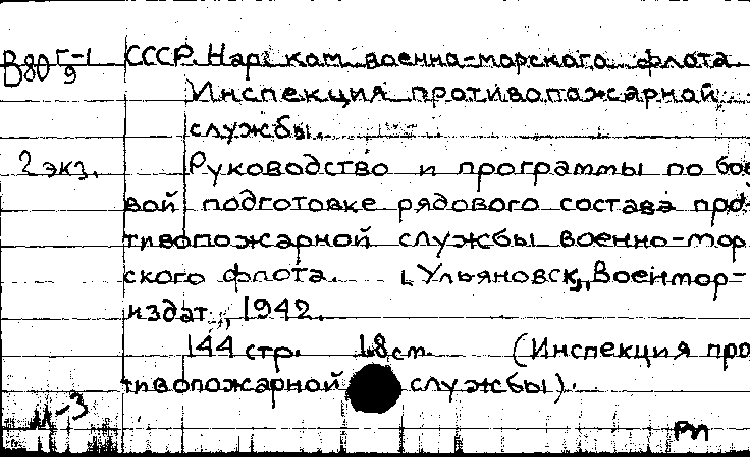 В80 Г-1 СССР. Нар. ком. военно-морского флота.
9
Инспекция противопожарной
службы.
2 экз. Руководство и программы по бое
вой подготовке рядового состава про-
тивопожарной службы военно-мор
ского флота. Ульяновск, Военмор-
издат, 1942.
144 стр. 18 см. (Инспекция про
тивопожарной службы).
-3